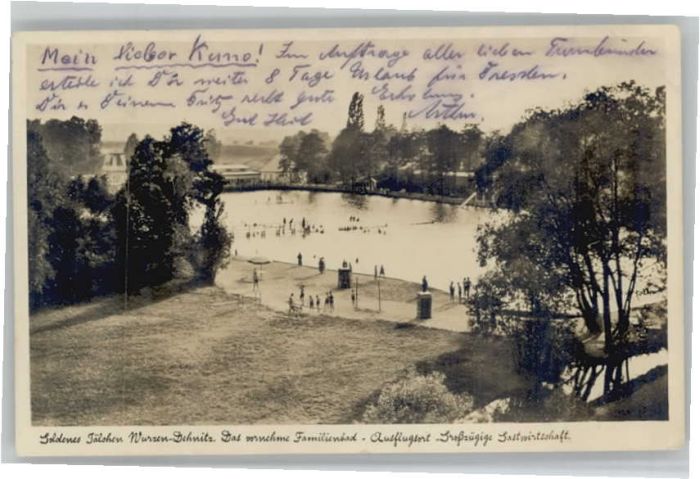 Mein lieber Kuno! Im Auftrage aller lieben Turnbrüder
erteile ich Dir weiter 8 Tage Urlaub für Dresden.
Dir u Deinem Fritz recht gute Erholung.
Gut Heil Arthur.
Goldenes Tälchen Wurzen-Dehnitz. Das vornehme Familienbad - Ausflugsort - Großzügige Gastwirtschaft.